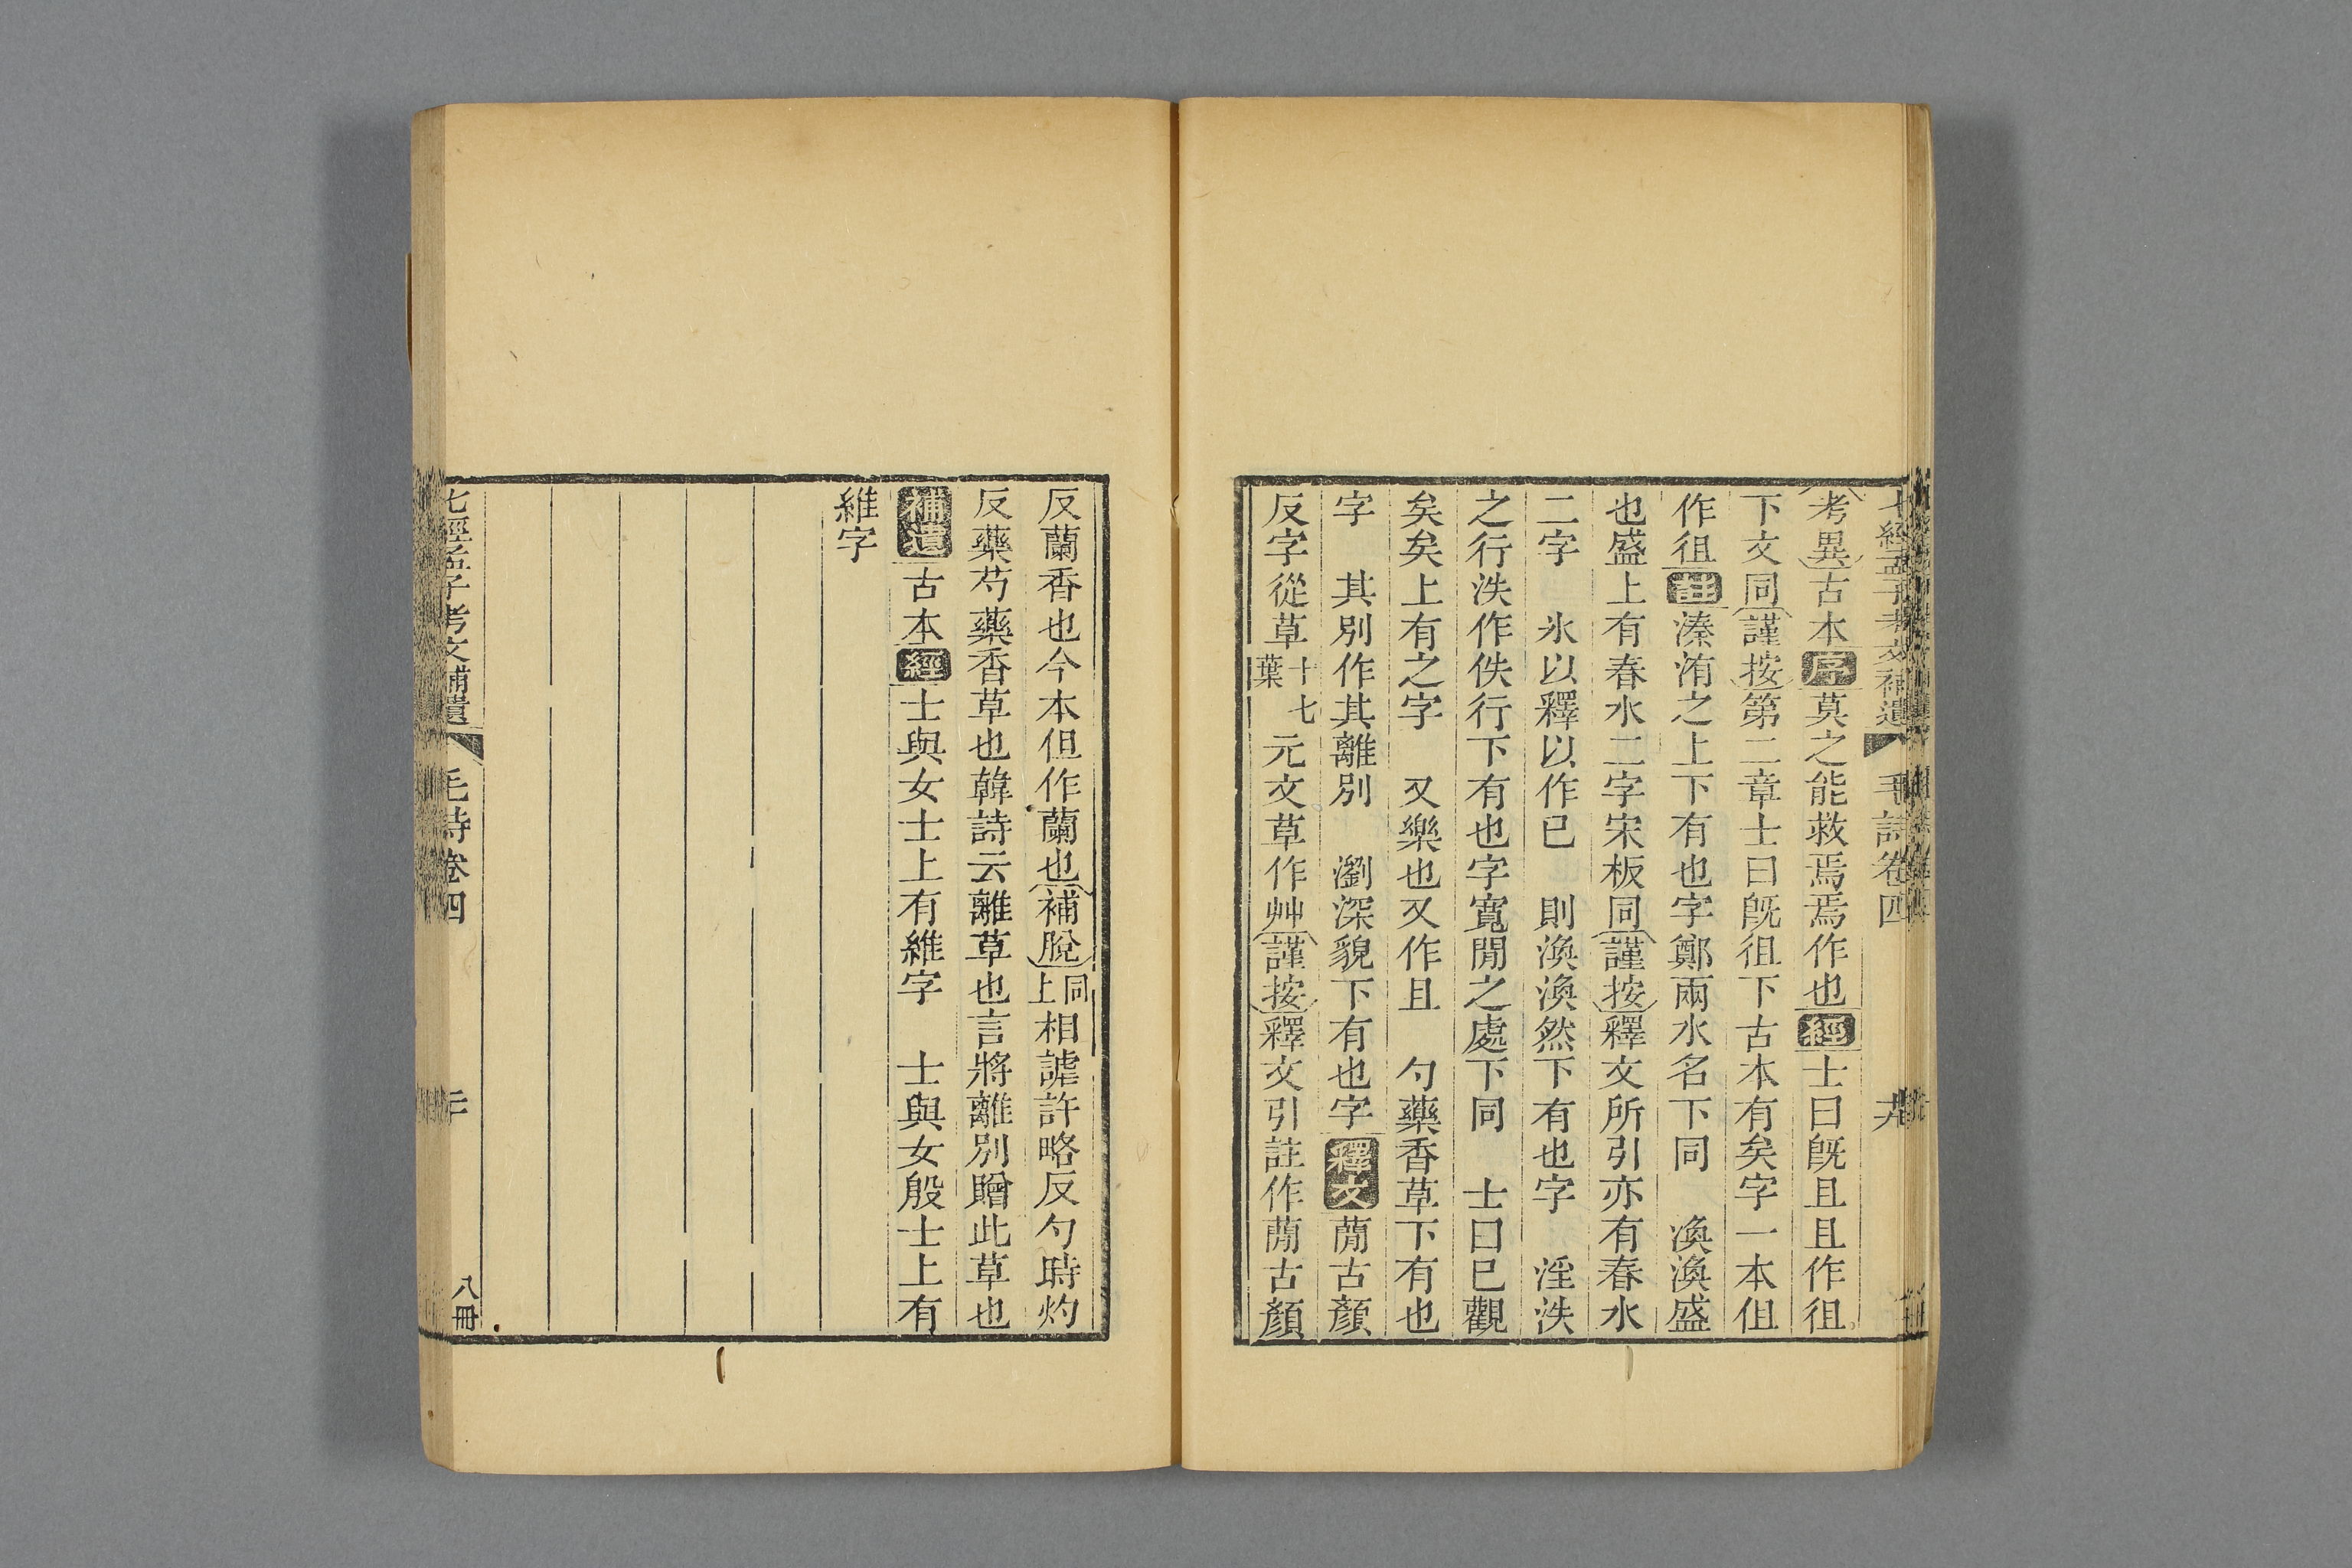 七經孟子考文補遺 毛詩卷四
考異古本序莫之能救焉焉作也經士曰旣且且作徂
下文同謹按第二章士曰旣徂下古本有矣字一本伹
作徂註溱洧之上下有也字鄭兩水名下同 渙渙盛
也盛上有春水二字宋板同謹按釋文所引亦有春水
二字 氷以釋以作已 則渙渙然下有也字 淫泆
之行泆作佚行下有也字寬閒之處下同 士曰已觀
矣矣上有之字 又樂也又作且 勺藥香草下有也
字 其別作其離別 瀏深貌下有也字釋文蕑古顏
反字從草十七葉 元文草作艸謹按釋文引註作蕑古顏
反蘭香也今本但作蘭也補脫同上相謔許略反勺時灼
反藥芍藥香草也韓詩云離草也言將離別贈此草也
補遺古本經士與女士上有維字 士與女殷士上有
維字
七經孟子考文補遺 毛詩卷四 二十 八冊